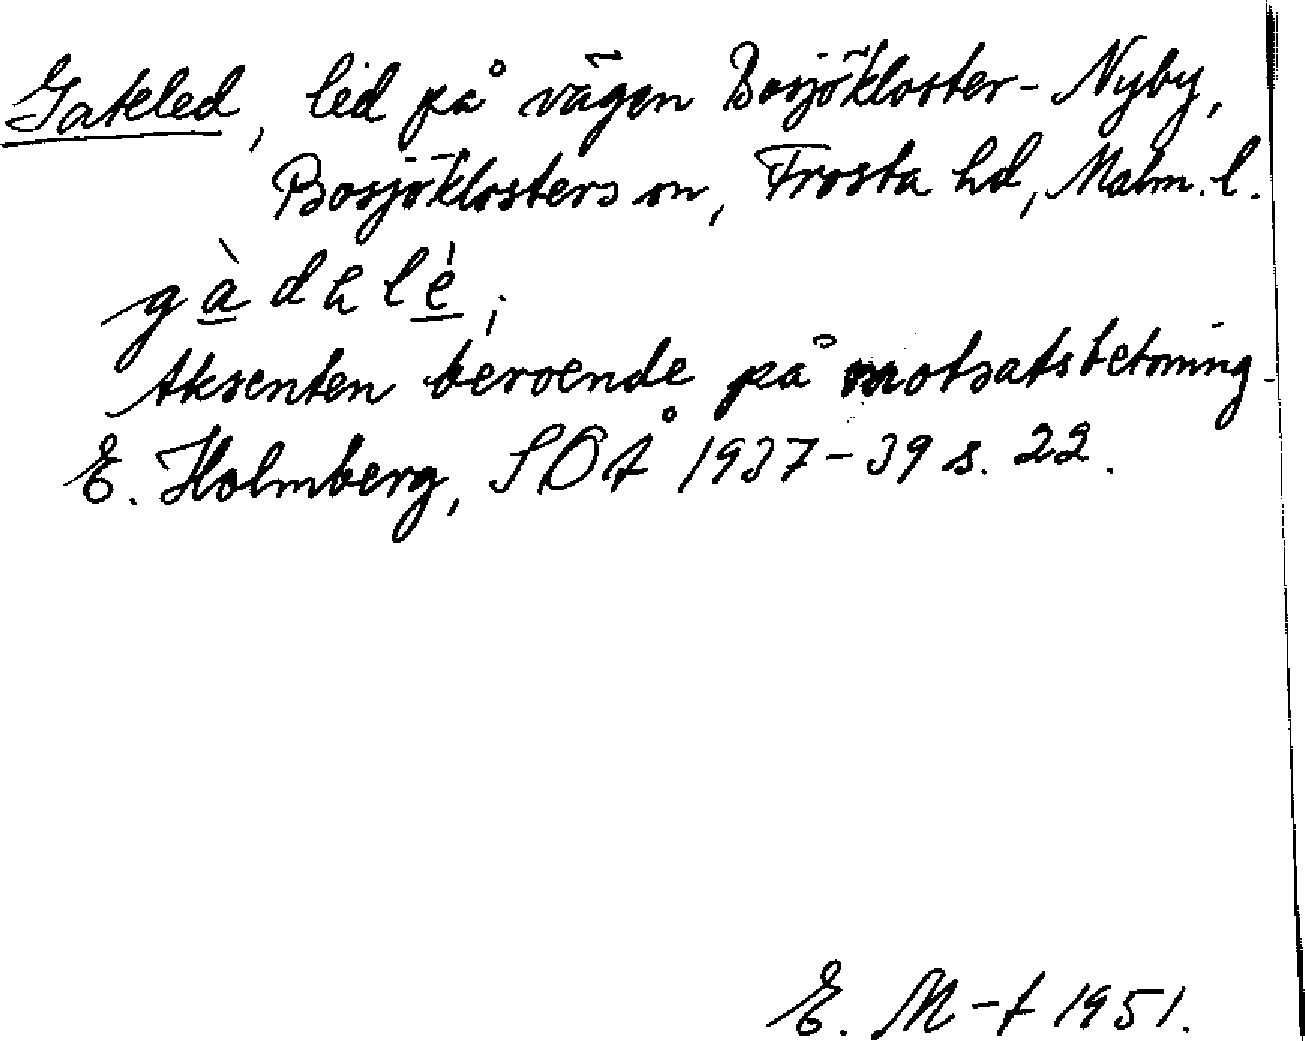 Gateled, led på vägen Bosjökloster - Nyby,
Bosjöklosters sn, Frosta hd, Malm. l.
gàdəlè;
Aksenten beroende på motsatsbetoning
E. Holmberg, SOÅ 1937-39 s. 22.
E. M-t 1951.